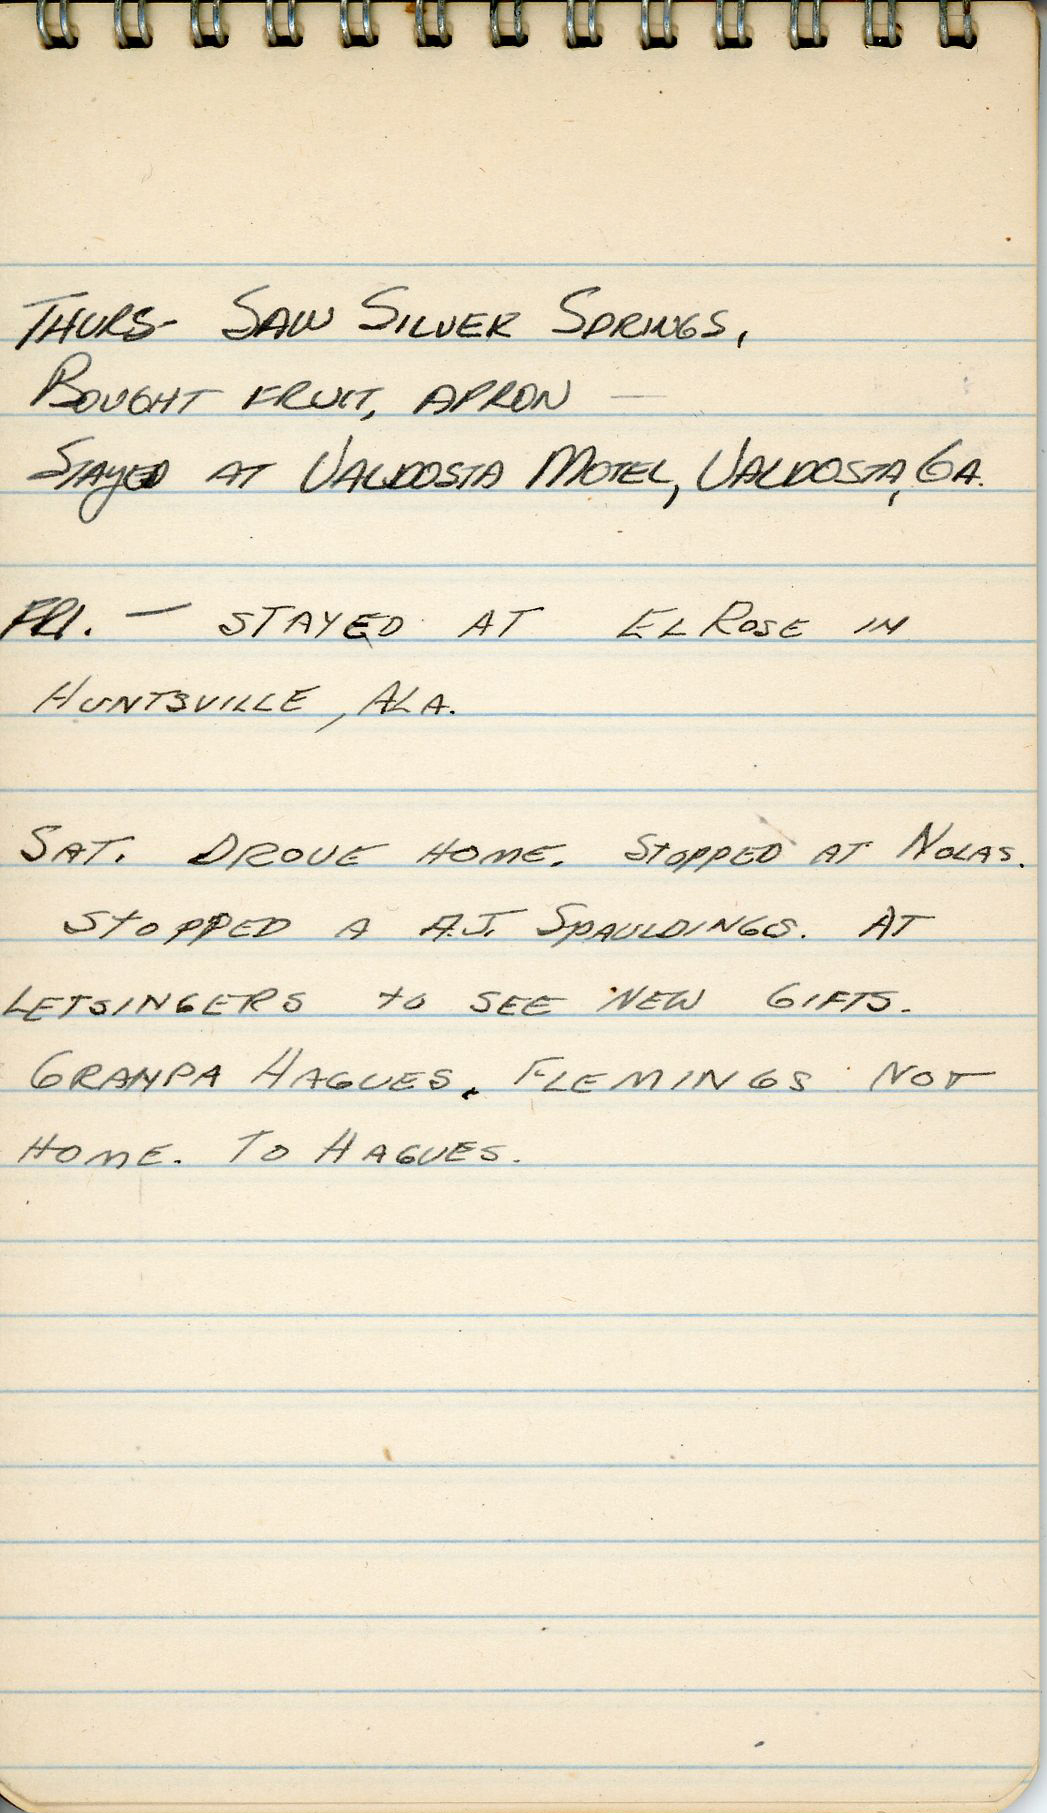 THURS- SAW SILVER SPRINGS,
BOUGHT FRUIT, APRON —
STAYED AT VALDOSTA MOTEL, VALDOSTA, GA.
FRI. — STAYED AT EL ROSE IN
HUNTSVILLE, ALA.
SAT. DROVE HOME. STOPPED AT NOLAS.
STOPPED A A.J. SPAULDINGS. AT
LETSINGERS TO SEE NEW GIFTS.
GRAMPA HAGUES. FLEMINGS NOT
HOME. TO HAGUES.